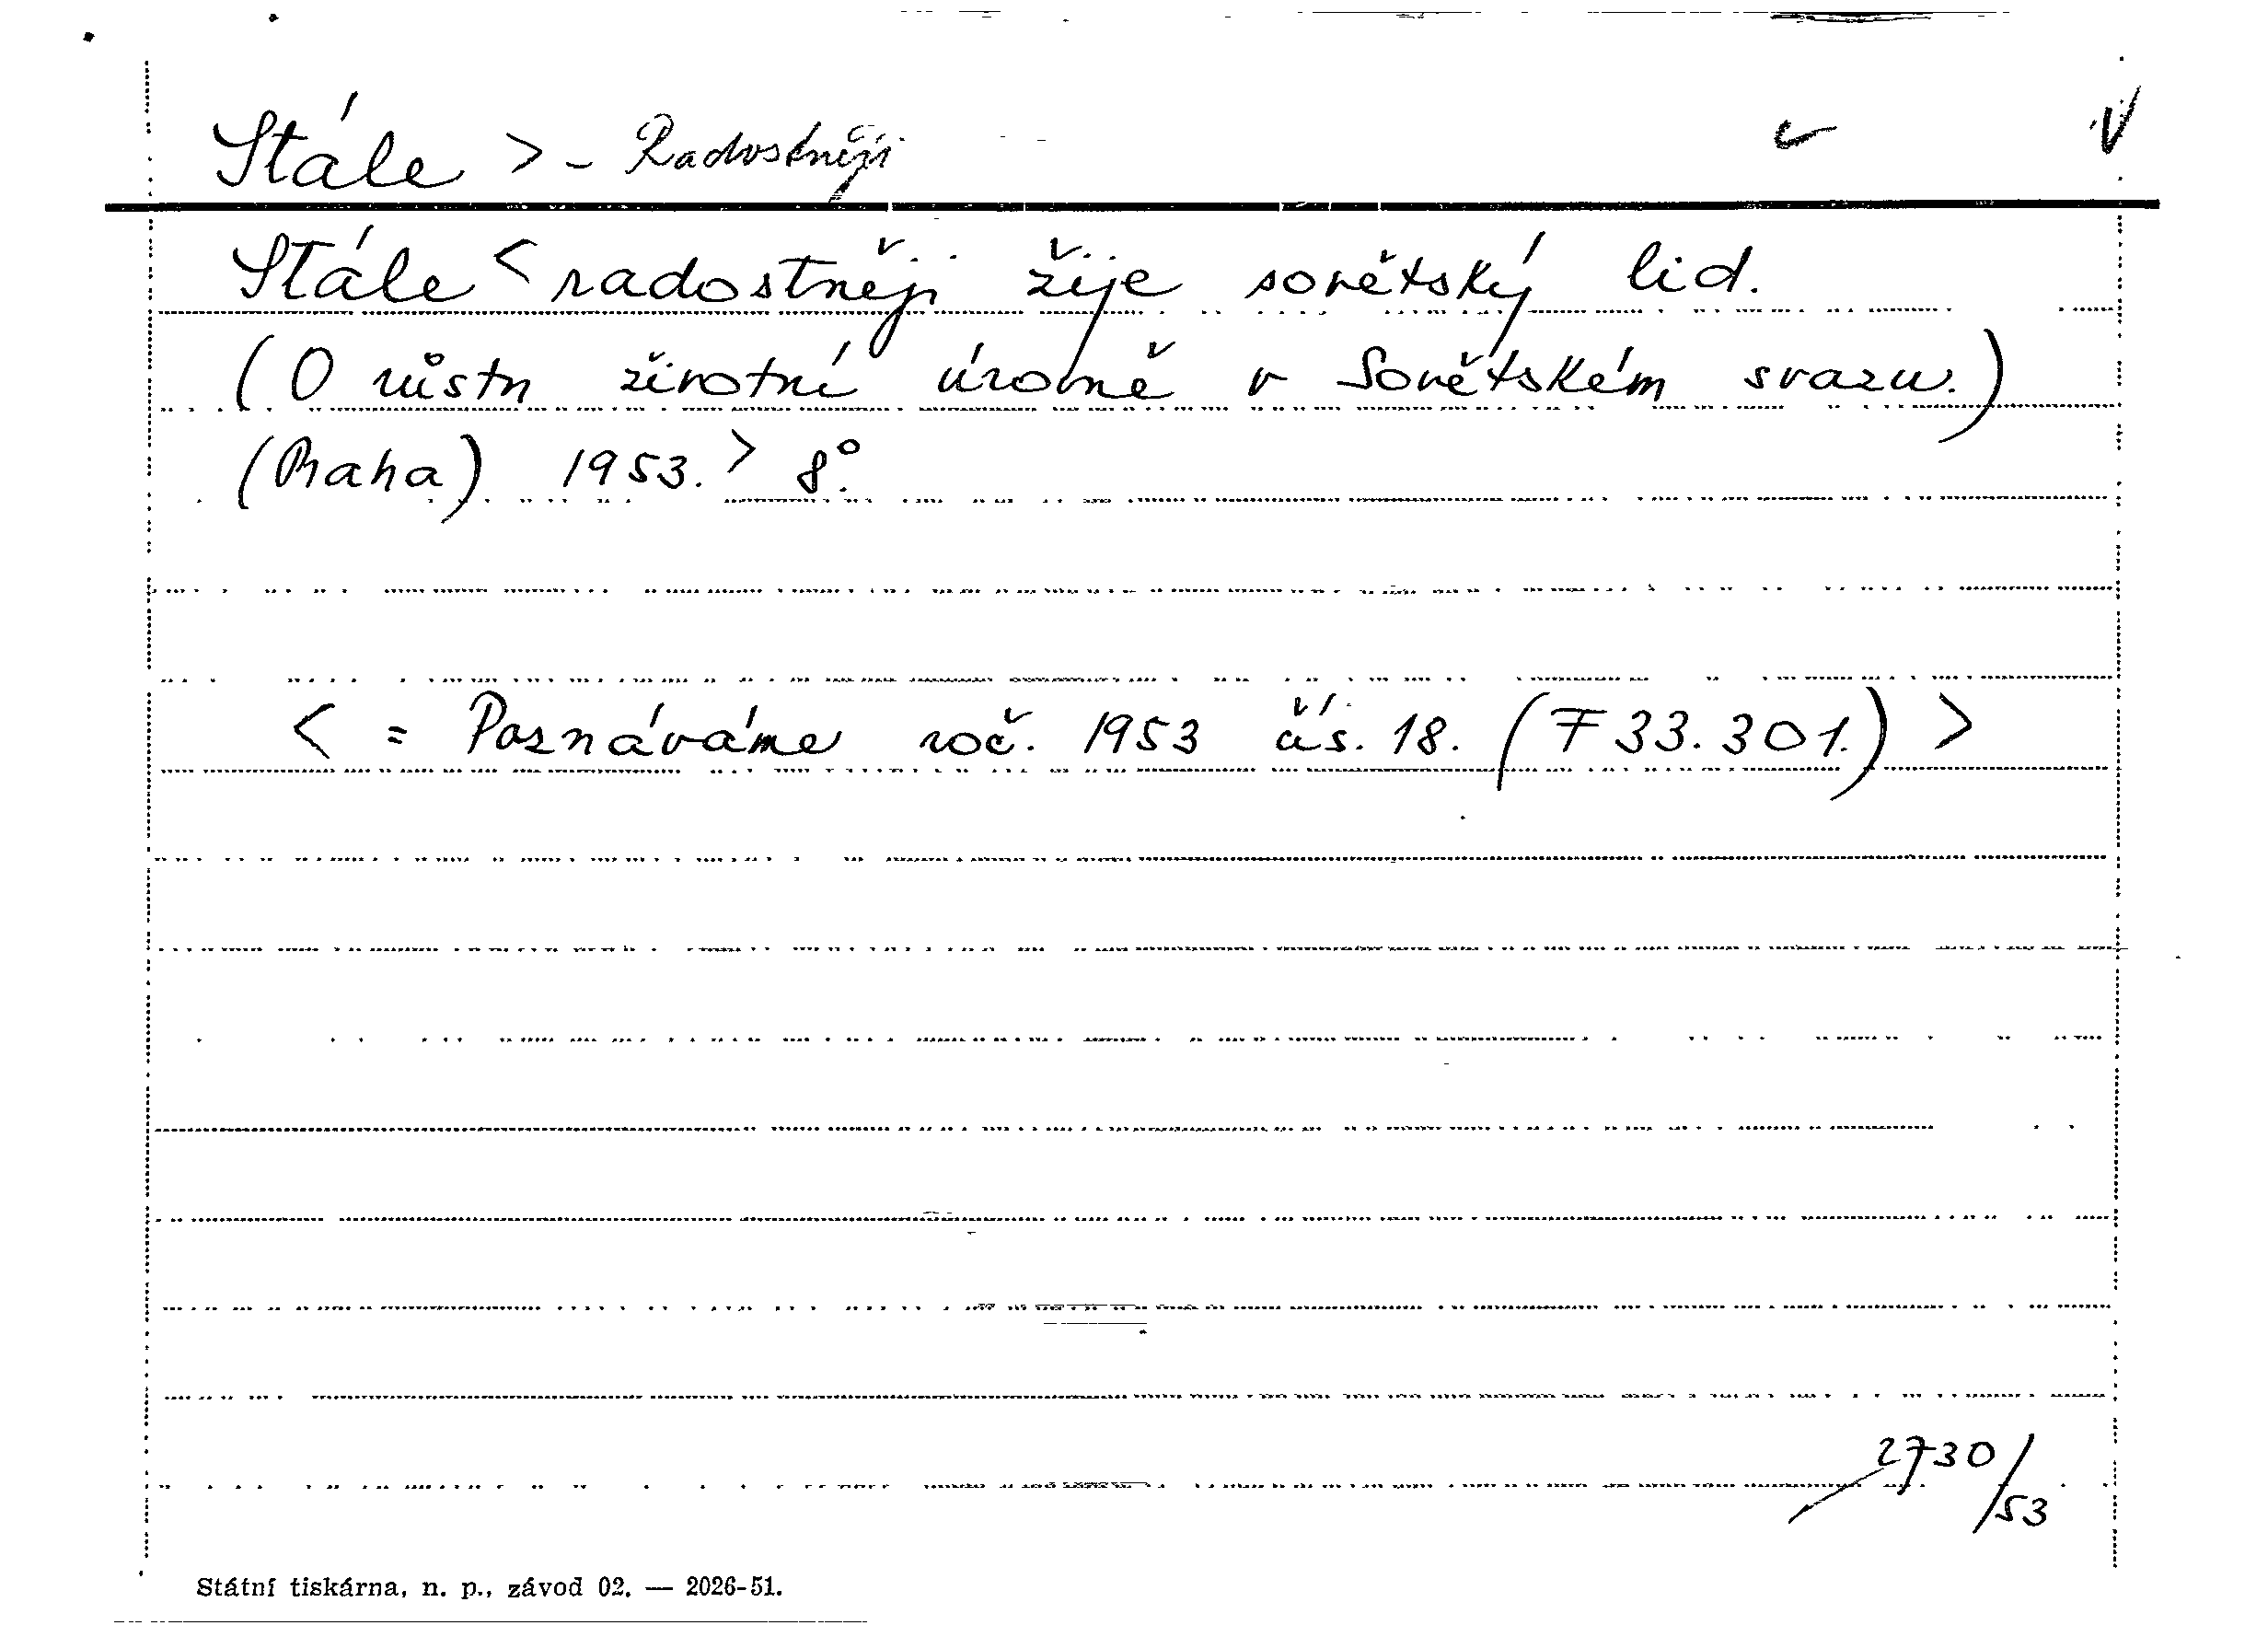 Stále > - Radostněji
Stále < radostněji žije sovětský lid.
(O růstu životní úrovně v Sovětském svazu.)
(Praha) 1953. > 8°.
< = Poznáváme roč. 1953 čís. 18. (F 33.301.) >
2730/53
Státní tiskárna, n. p., závod 02. — 2026-51.